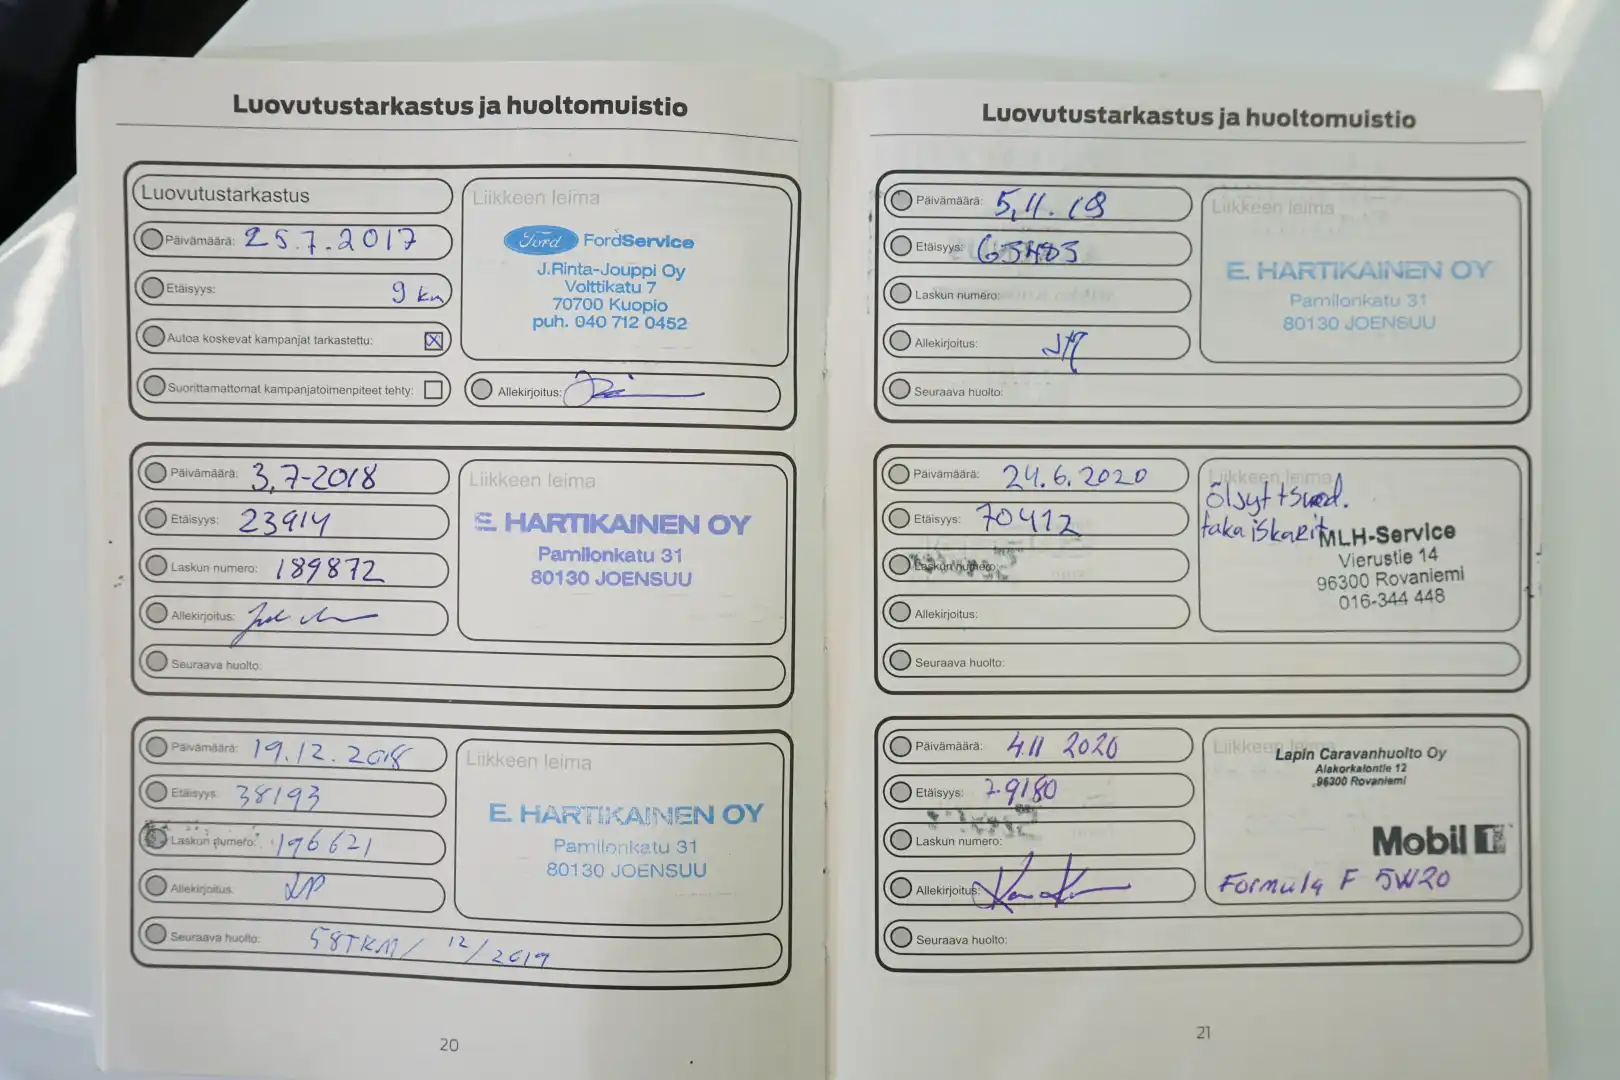 Luovutustarkastus ja huoltomuistio
Luovutustarkastus
Päivämäärä: 25.7.2017
Etäisyys: 9 km
Autoa koskevat kampanjat tarkastettu: X
Suorittamattomat kampanjatoimenpiteet tehty:
Liikkeen leima
Ford FordService
J.Rinta-Jouppi Oy
Volttikatu 7
70700 Kuopio
puh. 040 712 0452
Allekirjoitus:
Päivämäärä: 3.7-2018
Etäisyys: 23914
Laskun numero: 189872
Allekirjoitus:
Seuraava huolto:
Liikkeen leima
E. HARTIKAINEN OY
Pamilonkatu 31
80130 JOENSUU
Päivämäärä: 19.12.2018
Etäisyys: 38193
Laskun numero: 196621
Allekirjoitus:
Seuraava huolto: 58TKM/ 12/2019
Liikkeen leima
E. HARTIKAINEN OY
Pamilonkatu 31
80130 JOENSUU
20
Luovutustarkastus ja huoltomuistio
Päivämäärä: 5.11.19
Etäisyys: 65483
Laskun numero:
Allekirjoitus:
Seuraava huolto:
Liikkeen leima
E. HARTIKAINEN OY
Pamilonkatu 31
80130 JOENSUU
Päivämäärä: 24.6.2020
Etäisyys: 70412
Laskun numero:
Allekirjoitus:
Seuraava huolto:
Liikkeen leima
takaiskarit
MLH-Service
Vierustie 14
96300 Rovaniemi
016-344 448
Päivämäärä: 4.11 2020
Etäisyys: 79180
Laskun numero:
Allekirjoitus:
Seuraava huolto:
Liikkeen leima
Lapin Caravanhuolto Oy
Alakorkalontie 12
96300 Rovaniemi
Mobil 1
Formula F 5W20
21